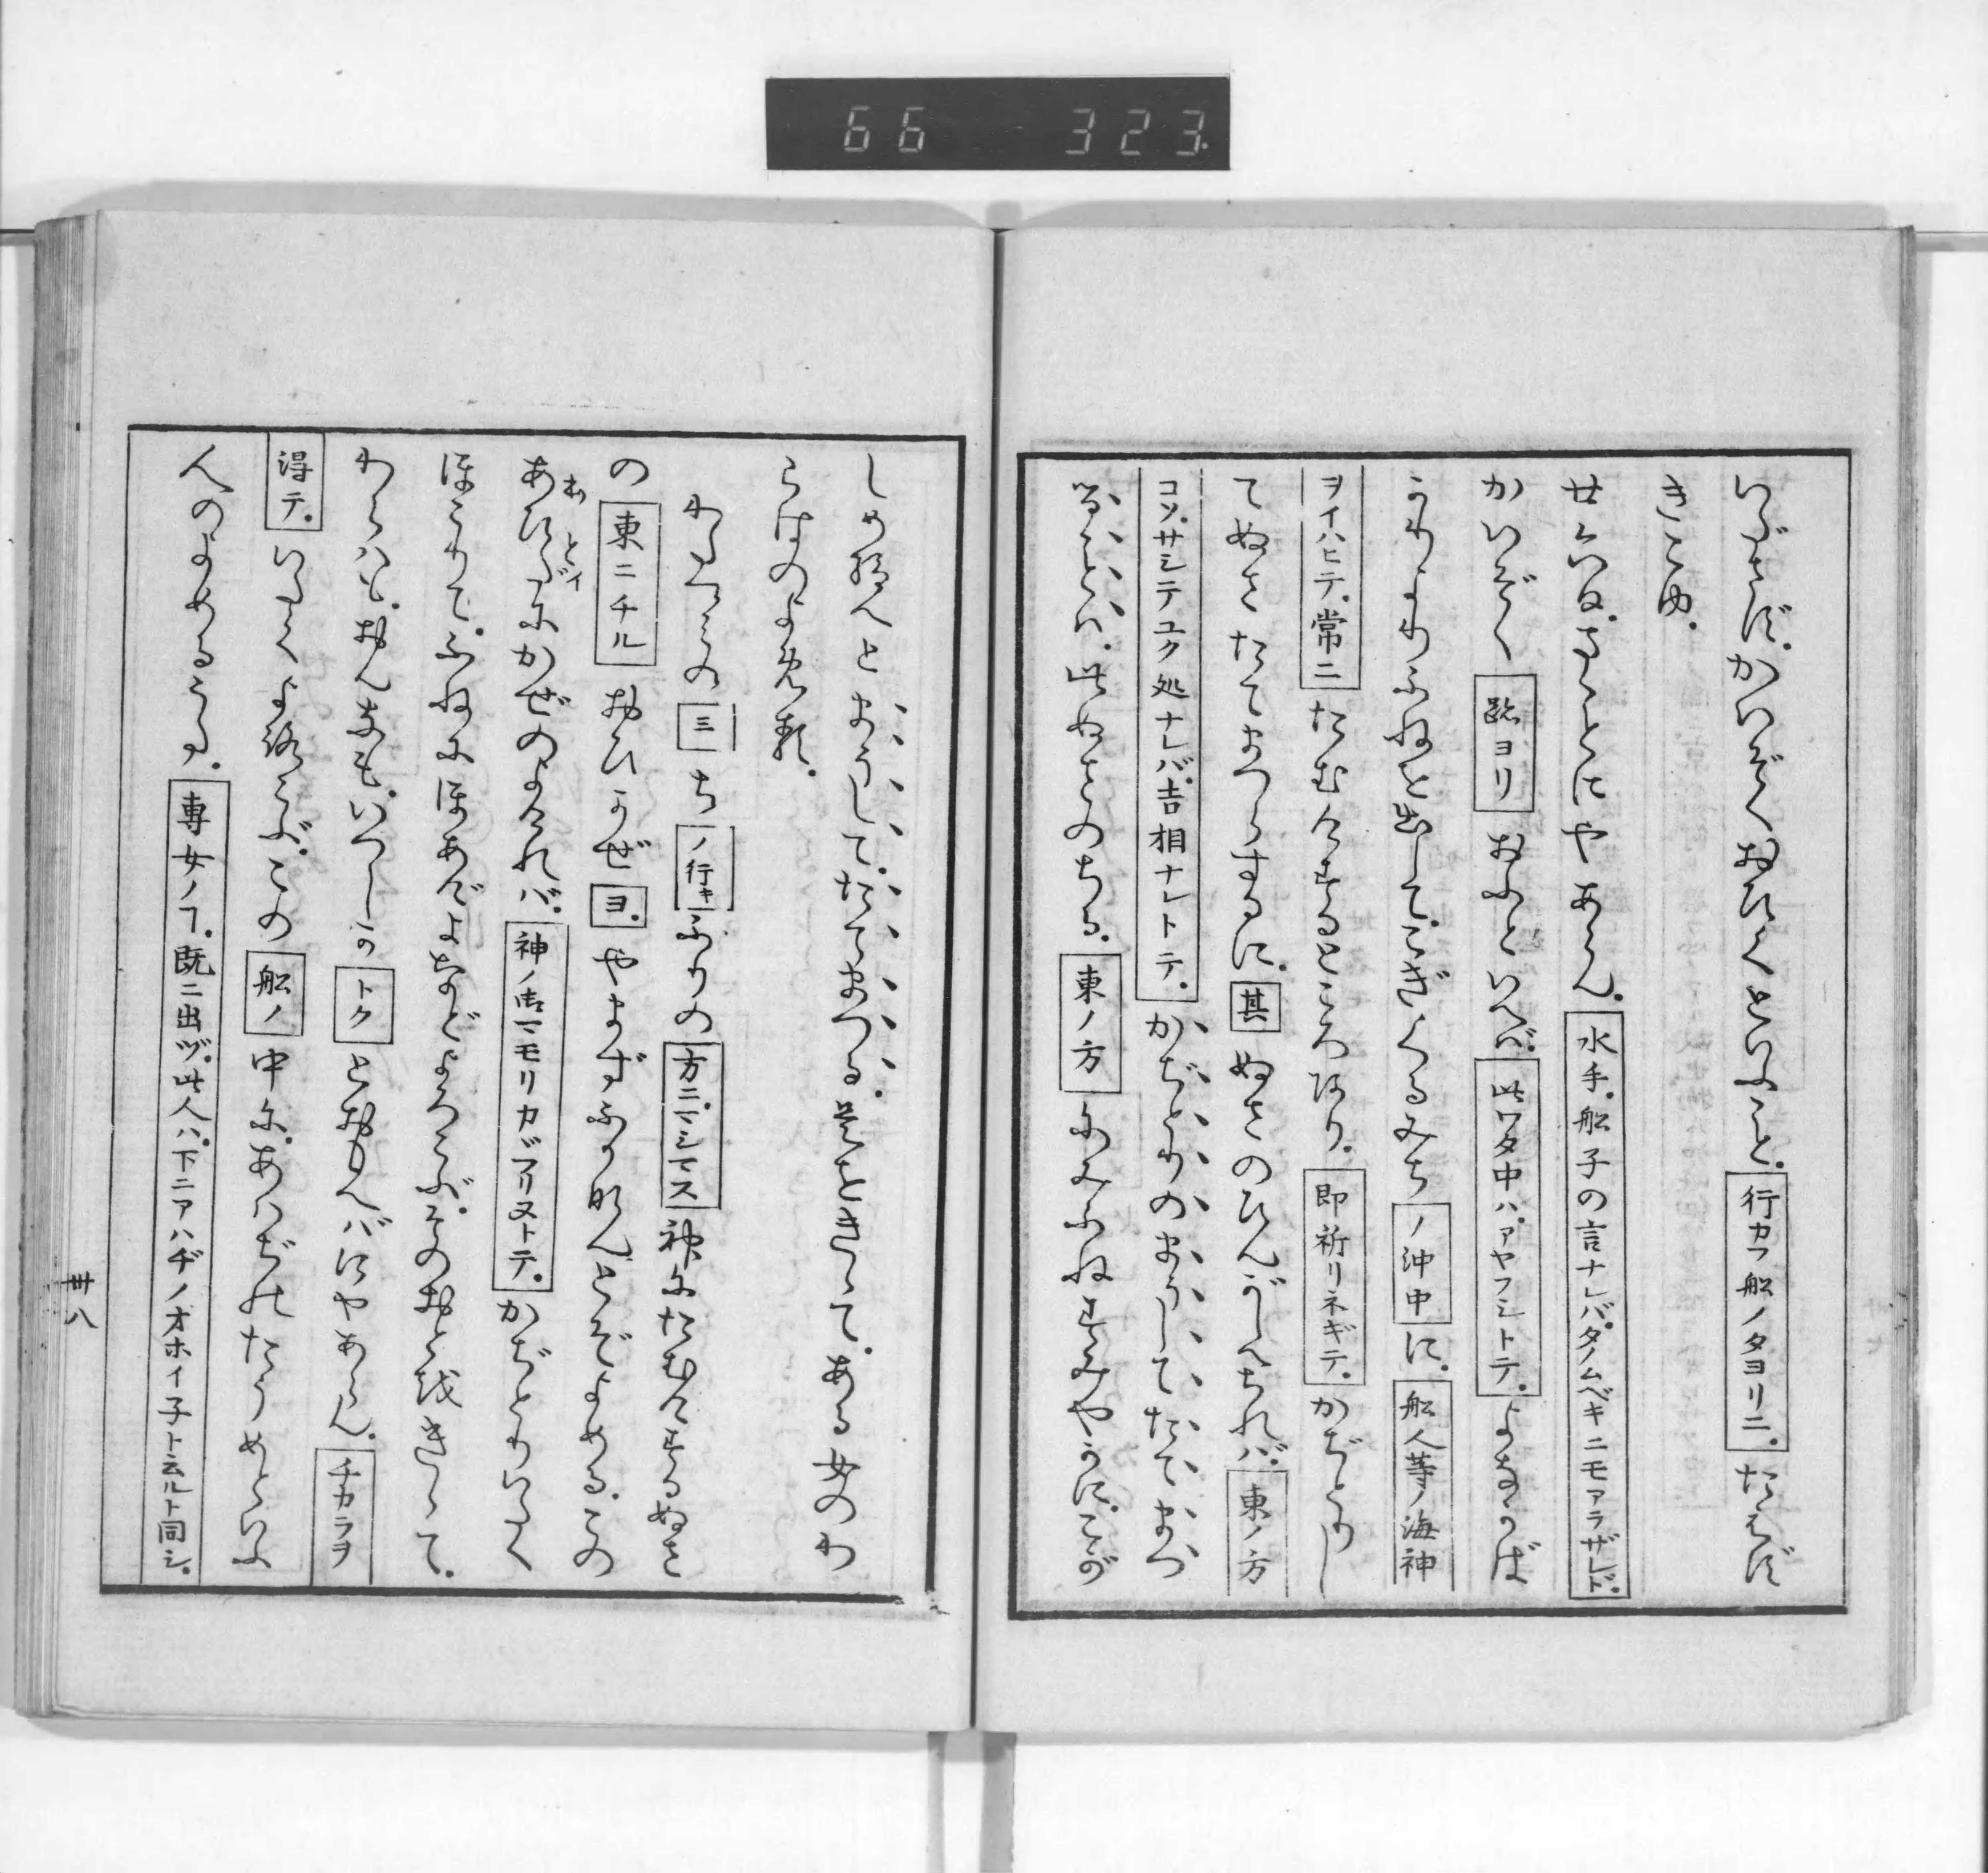 66 323.
いださず。かいぞくおひくといふこと。行カフ船ノタヨリニ。たえず
きこゆ。
廿六日。まことにやあらん。水手。船子の言ナレバ。タノムベキニモアラザレド。
かいぞく跡ヨリおふといへば。此ワタ中ハ。アヤフシトテ。よなかば
かりよりふねを出してこぎくるみちノ沖中に。船人等ノ海神
ヲイハヒテ。常ニたむけするところあり。即祈リネギテ。かぢとりし
てぬさたてまつらするに。其ぬさのひんがしへちれば。東ノ方
コソ。サシテユク処ナレバ。吉相ナレトテ。かぢとりのまうしてたてまつ
ることは。此ぬさのちる。東ノ方にみふねすみやかに。こが
しめ給へとまうして。たてまつる。是をききて。ある女のわ
らはのよめる。
わたつみの三ちノ行キふりの方ニマシマス神にたむけするぬさ
の東ニチルおひかぜヨ。やまずふかなんとぞよめる。この
あひだにかぜのよければ。神ノ御マモリカガフリヌトテ。かぢとりいたく
おとイ
ほこりて。ふねにほあげよなどよろこぶ。そのおとをききて。
わらはも。おんなも。いつしかトクとおもへばにやあらん。チカラヲ
得テ。いたくよろこぶ。このノ船ノ中に。あはぢのたうめといふ
人のよめるうた。専女ノコト。既ニ出ヅ。此人ハ。下ニアハヂノオホイ子ト云ルト同シ。
卅八